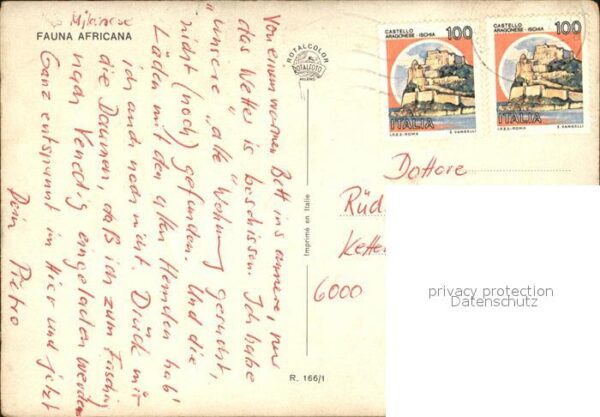 Milanese
FAUNA AFRICANA
Von einem warmen Bett ins andere, nur
das Wetter is beschissen. Ich habe
"unsere" alte Wohnung gesucht,
nicht (noch) gefunden. Und die
Läden mit den alten Hemden hab'
ich auch noch nicht. Drück mir
die Daumen, daß ich zum Fasching
nach Venedig eingeladen werde
Ganz entspannt im Hier und Jetzt
Dein Pietro
ROTALCOLOR
ROTALFOTO
MILANO
Imprimé en Italie
R. 166/1
CASTELLO
ARAGONESE - ISCHIA
100
ITALIA
I.P.Z.S.-ROMA
E. VANGELLI
CASTELLO
ARAGONESE - ISCHIA
100
ITALIA
I.P.Z.S.-ROMA
E. VANGELLI
Dottore
Rüd
Kette
6000
privacy protection
Datenschutz